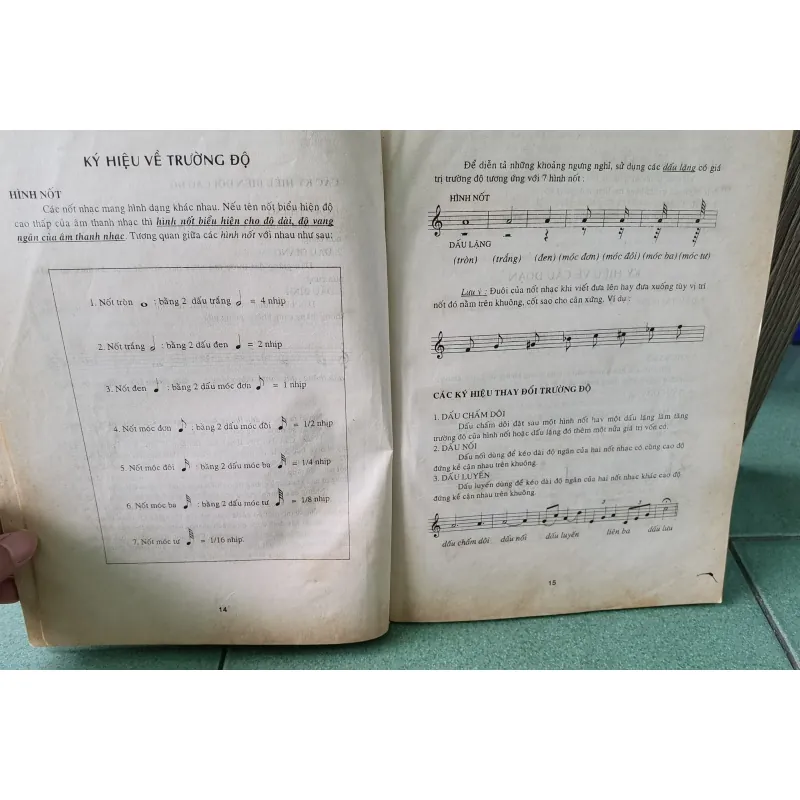 KÝ HIỆU VỀ TRƯỜNG ĐỘ
HÌNH NỐT
Các nốt nhạc mang hình dạng khác nhau. Nếu tên nốt biểu hiện độ
cao thấp của âm thanh nhạc thì hình nốt biểu hiện cho độ dài, độ vang
ngắn của âm thanh nhạc. Tương quan giữa các hình nốt với nhau như sau:
1. Nốt tròn : bằng 2 dấu trắng = 4 nhịp
2. Nốt trắng : bằng 2 dấu đen = 2 nhịp
3. Nốt đen : bằng 2 dấu móc đơn = 1 nhịp
4. Nốt móc đơn : bằng 2 dấu móc đôi = 1/2 nhịp
5. Nốt móc đôi : bằng 2 dấu móc ba = 1/4 nhịp
6. Nốt móc ba : bằng 2 dấu móc tư = 1/8 nhịp
7. Nốt móc tư = 1/16 nhịp.
14
Để diễn tả những khoảng ngưng nghỉ, sử dụng các dấu lặng có giá
trị trường độ tương ứng với 7 hình nốt :
HÌNH NỐT
DẤU LẶNG
(tròn) (trắng) (đen) (móc đơn) (móc đôi) (móc ba) (móc tư)
Lưu ý : Đuôi của nốt nhạc khi viết đưa lên hay đưa xuống tùy vị trí
nốt đó nằm trên khuông, cốt sao cho cân xứng. Ví dụ :
CÁC KÝ HIỆU THAY ĐỔI TRƯỜNG ĐỘ
1. DẤU CHẤM DÔI
Dấu chấm dôi đặt sau một hình nốt hay một dấu lặng làm tăng
trường độ của hình nốt hoặc dấu lặng đó thêm một nửa giá trị vốn có.
2. DẤU NỐI
Dấu nối dùng để kéo dài độ ngân của hai nốt nhạc có cùng cao độ
đứng kề cận nhau trên khuông.
3. DẤU LUYẾN
Dấu luyến dùng để kéo dài độ ngân của hai nốt nhạc khác cao độ
đứng kề cận nhau trên khuông.
3 3
dấu chấm dôi dấu nối dấu luyến liên ba dấu lưu
15